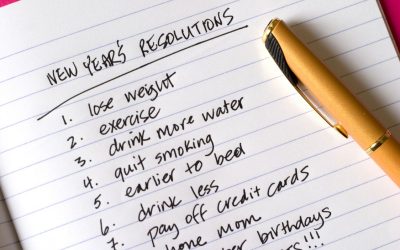 NEW YEAR'S RESOLUTIONS
1. lose weight
2. exercise
3. drink more water
4. quit smoking
5. earlier to bed
6. drink less
7. pay off credit cards
hone mom
birthdays